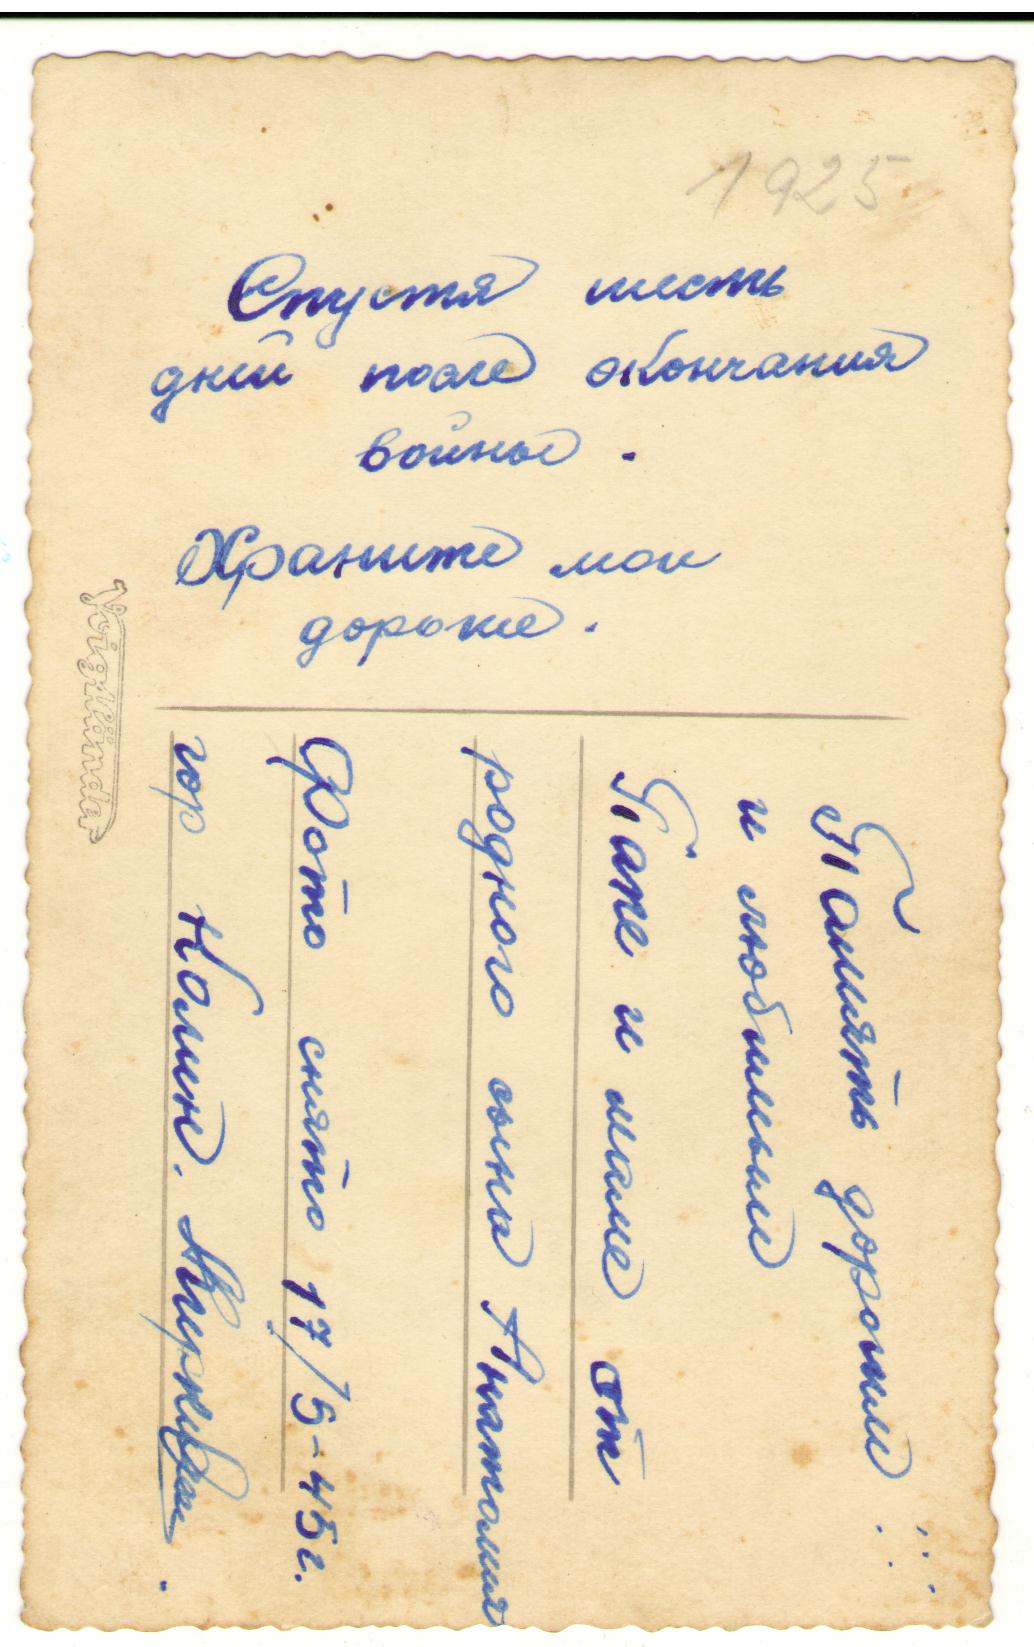 1925
Спустя шесть
дней после окончания
войны.
Храните мои
дорогие.
Voigtländer
Память дорогим
и любимым
Папе и маме от
родного сына Анатолия
Фото снято 17/5-45г.
гор Колин.